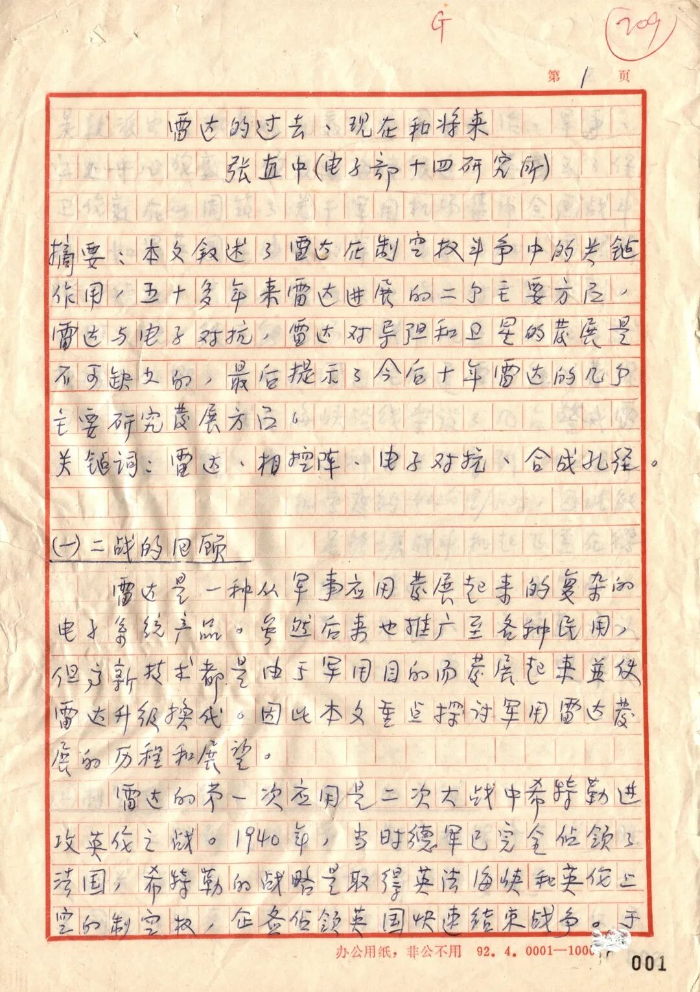 G
209
第 1 页
雷达的过去、现在和将来
张直中(电子部十四研究所)
摘要：本文叙述了雷达在制空权斗争中的关键
作用，五十多年来雷达进展的二个主要方向，
雷达与电子对抗，雷达对导弹和卫星的发展是
不可缺少的，最后提示了今后十年雷达的几个
主要研究发展方向。
关键词：雷达、相控阵、电子对抗、合成孔径。
(一)二战的回顾
雷达是一种从军事应用发展起来的复杂的
电子系统产品。虽然后来也推广至各种民用，
但高新技术都是由于军用目的而发展起来并使
雷达升级换代。因此本文重点探讨军用雷达发
展的历程和展望。
雷达的第一次应用是二次大战中希特勒进
攻英伦之战。1940年，当时德军已完全占领了
法国，希特勒的战略是取得英法海峡和英伦上
空的制空权，企图占领英国快速结束战争。于
办公用纸，非公不用 92.4.0001—1000
001